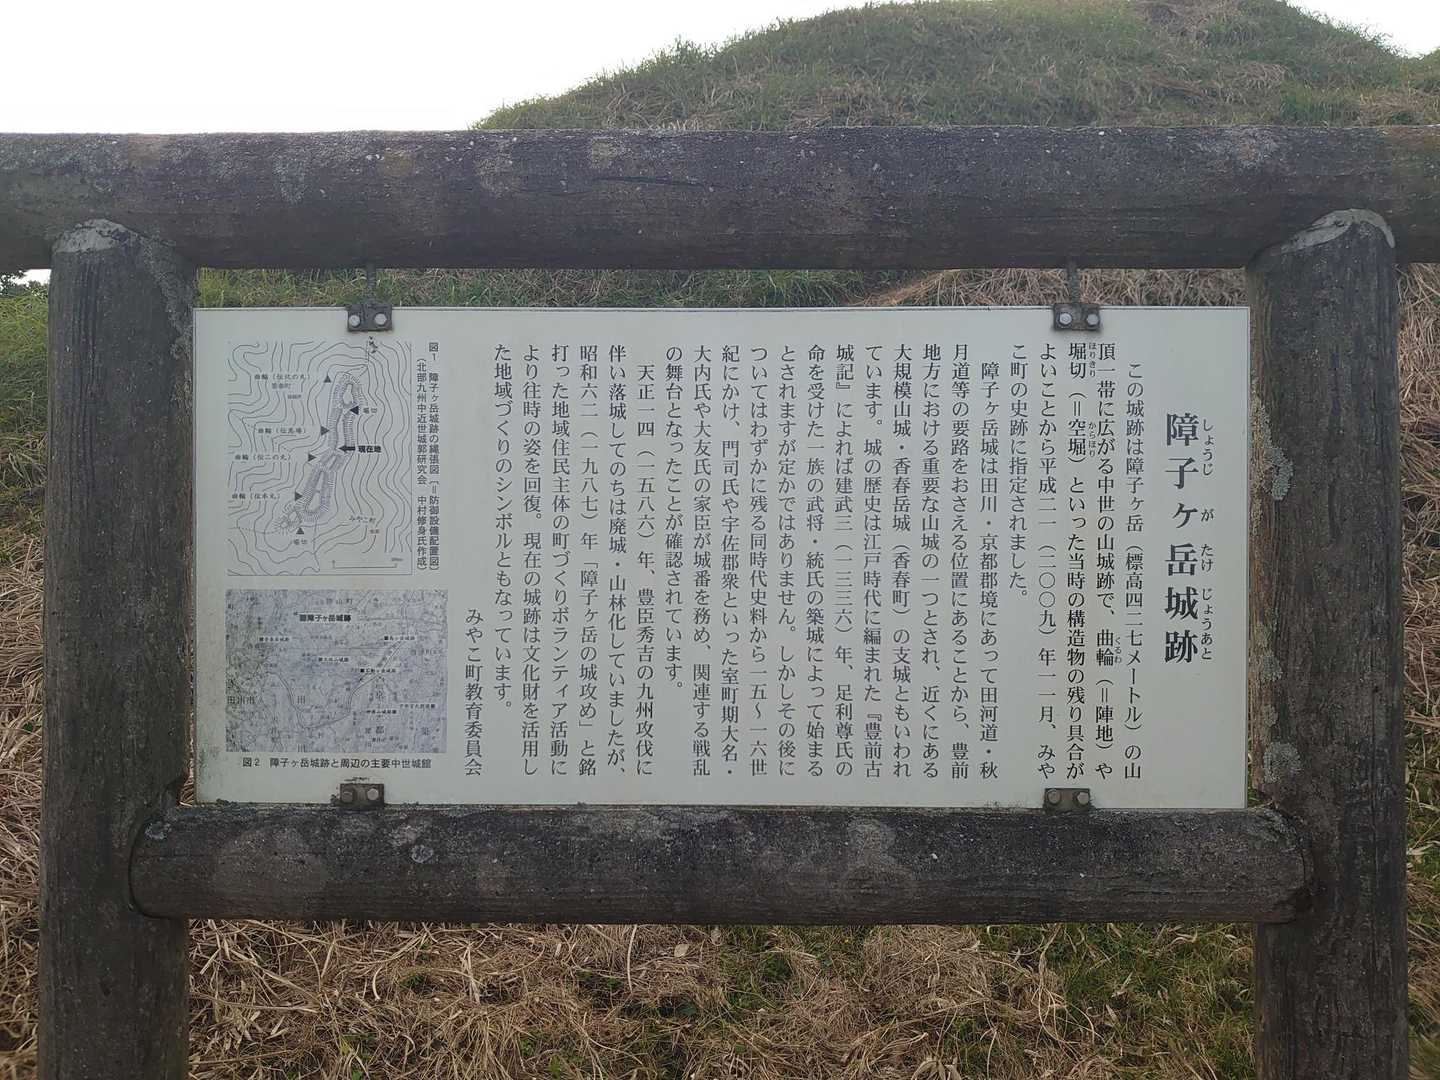 障子ヶ岳城跡
しょうじ が たけ じょうあと
この城跡は障子ヶ岳（標高四二七メートル）の山
頂一帯に広がる中世の山城跡で、曲輪（＝陣地）や
くるわ
堀切（＝空堀）といった当時の構造物の残り具合が
ほりきり からぼり
よいことから平成二一（二〇〇九）年一一月、みや
こ町の史跡に指定されました。
障子ヶ岳城は田川・京都郡境にあって田河道・秋
月道等の要路をおさえる位置にあることから、豊前
地方における重要な山城の一つとされ、近くにある
大規模山城・香春岳城（香春町）の支城ともいわれ
ています。城の歴史は江戸時代に編まれた『豊前古
城記』によれば建武三（一三三六）年、足利尊氏の
命を受けた一族の武将・統氏の築城によって始まる
とされますが定かではありません。しかしその後に
ついてはわずかに残る同時代史料から一五～一六世
紀にかけ、門司氏や宇佐郡衆といった室町期大名・
大内氏や大友氏の家臣が城番を務め、関連する戦乱
の舞台となったことが確認されています。
天正一四（一五八六）年、豊臣秀吉の九州攻伐に
伴い落城してのちは廃城・山林化していましたが、
昭和六二（一九八七）年「障子ヶ岳の城攻め」と銘
打った地域住民主体の町づくりボランティア活動に
より往時の姿を回復。現在の城跡は文化財を活用し
た地域づくりのシンボルともなっています。
みやこ町教育委員会
図1 障子ヶ岳城跡の縄張図（＝防御設備配置図）
（北部九州中近世城郭研究会 中村修身氏作成）
曲輪（伝北の丸）
香春町
堀切
曲輪（伝馬場）
現在地
曲輪（伝二の丸）
曲輪（伝本丸）
みやこ町
堀切
障子ヶ岳城跡
図2 障子ヶ岳城跡と周辺の主要中世城館